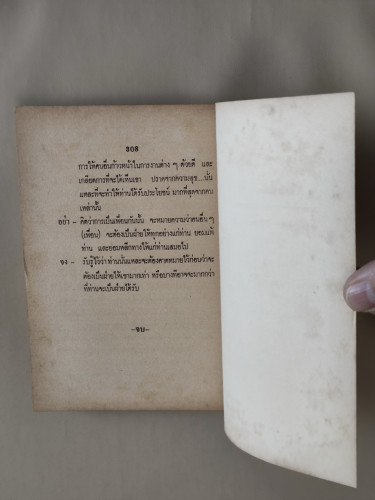 ๑๐๘
การให้คนอื่นก้าวหน้าในการงานต่าง ๆ ด้วยดี และ
เกลียดการที่จะได้เห็นเขา ปราศจากความสุข...นั่น
แหละที่จะทำให้ท่านได้รับประโยชน์ มากที่สุดจากคน
เหล่านั้น
อย่า – คิดว่าการเป็นเพื่อนกันนั้น จะหมายความว่าคนอื่น ๆ
(เพื่อน) จะต้องเป็นฝ่ายให้ทุกอย่างแก่ท่าน ยอมแพ้
ท่าน และยอมหลีกทางให้แก่ท่านเสมอไป
จง – รับรู้ไว้ว่า ท่านนั่นแหละจะต้องคาดหมายไว้ก่อนว่าจะ
ต้องเป็นฝ่ายให้เขามากเท่า หรือบางทีอาจจะมากกว่า
ที่ท่านจะเป็นฝ่ายได้รับ
–จบ–